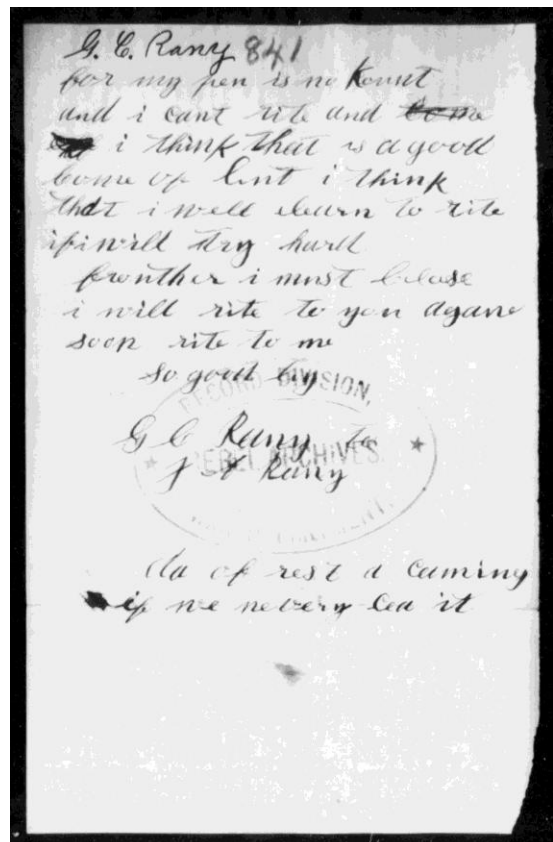 G. C. Rany 841
for my pen is no Kount
and i cant rite and come
i think that is a good
come of but i think
that i well learn to rite
if i will try hard
brouther i must close
i will rite to you agane
soon rite to me
so good by
RECORD DIVISION,
REBEL ARCHIVES
G C Rany to
J Rany
da of rest a caming
if we nevery it